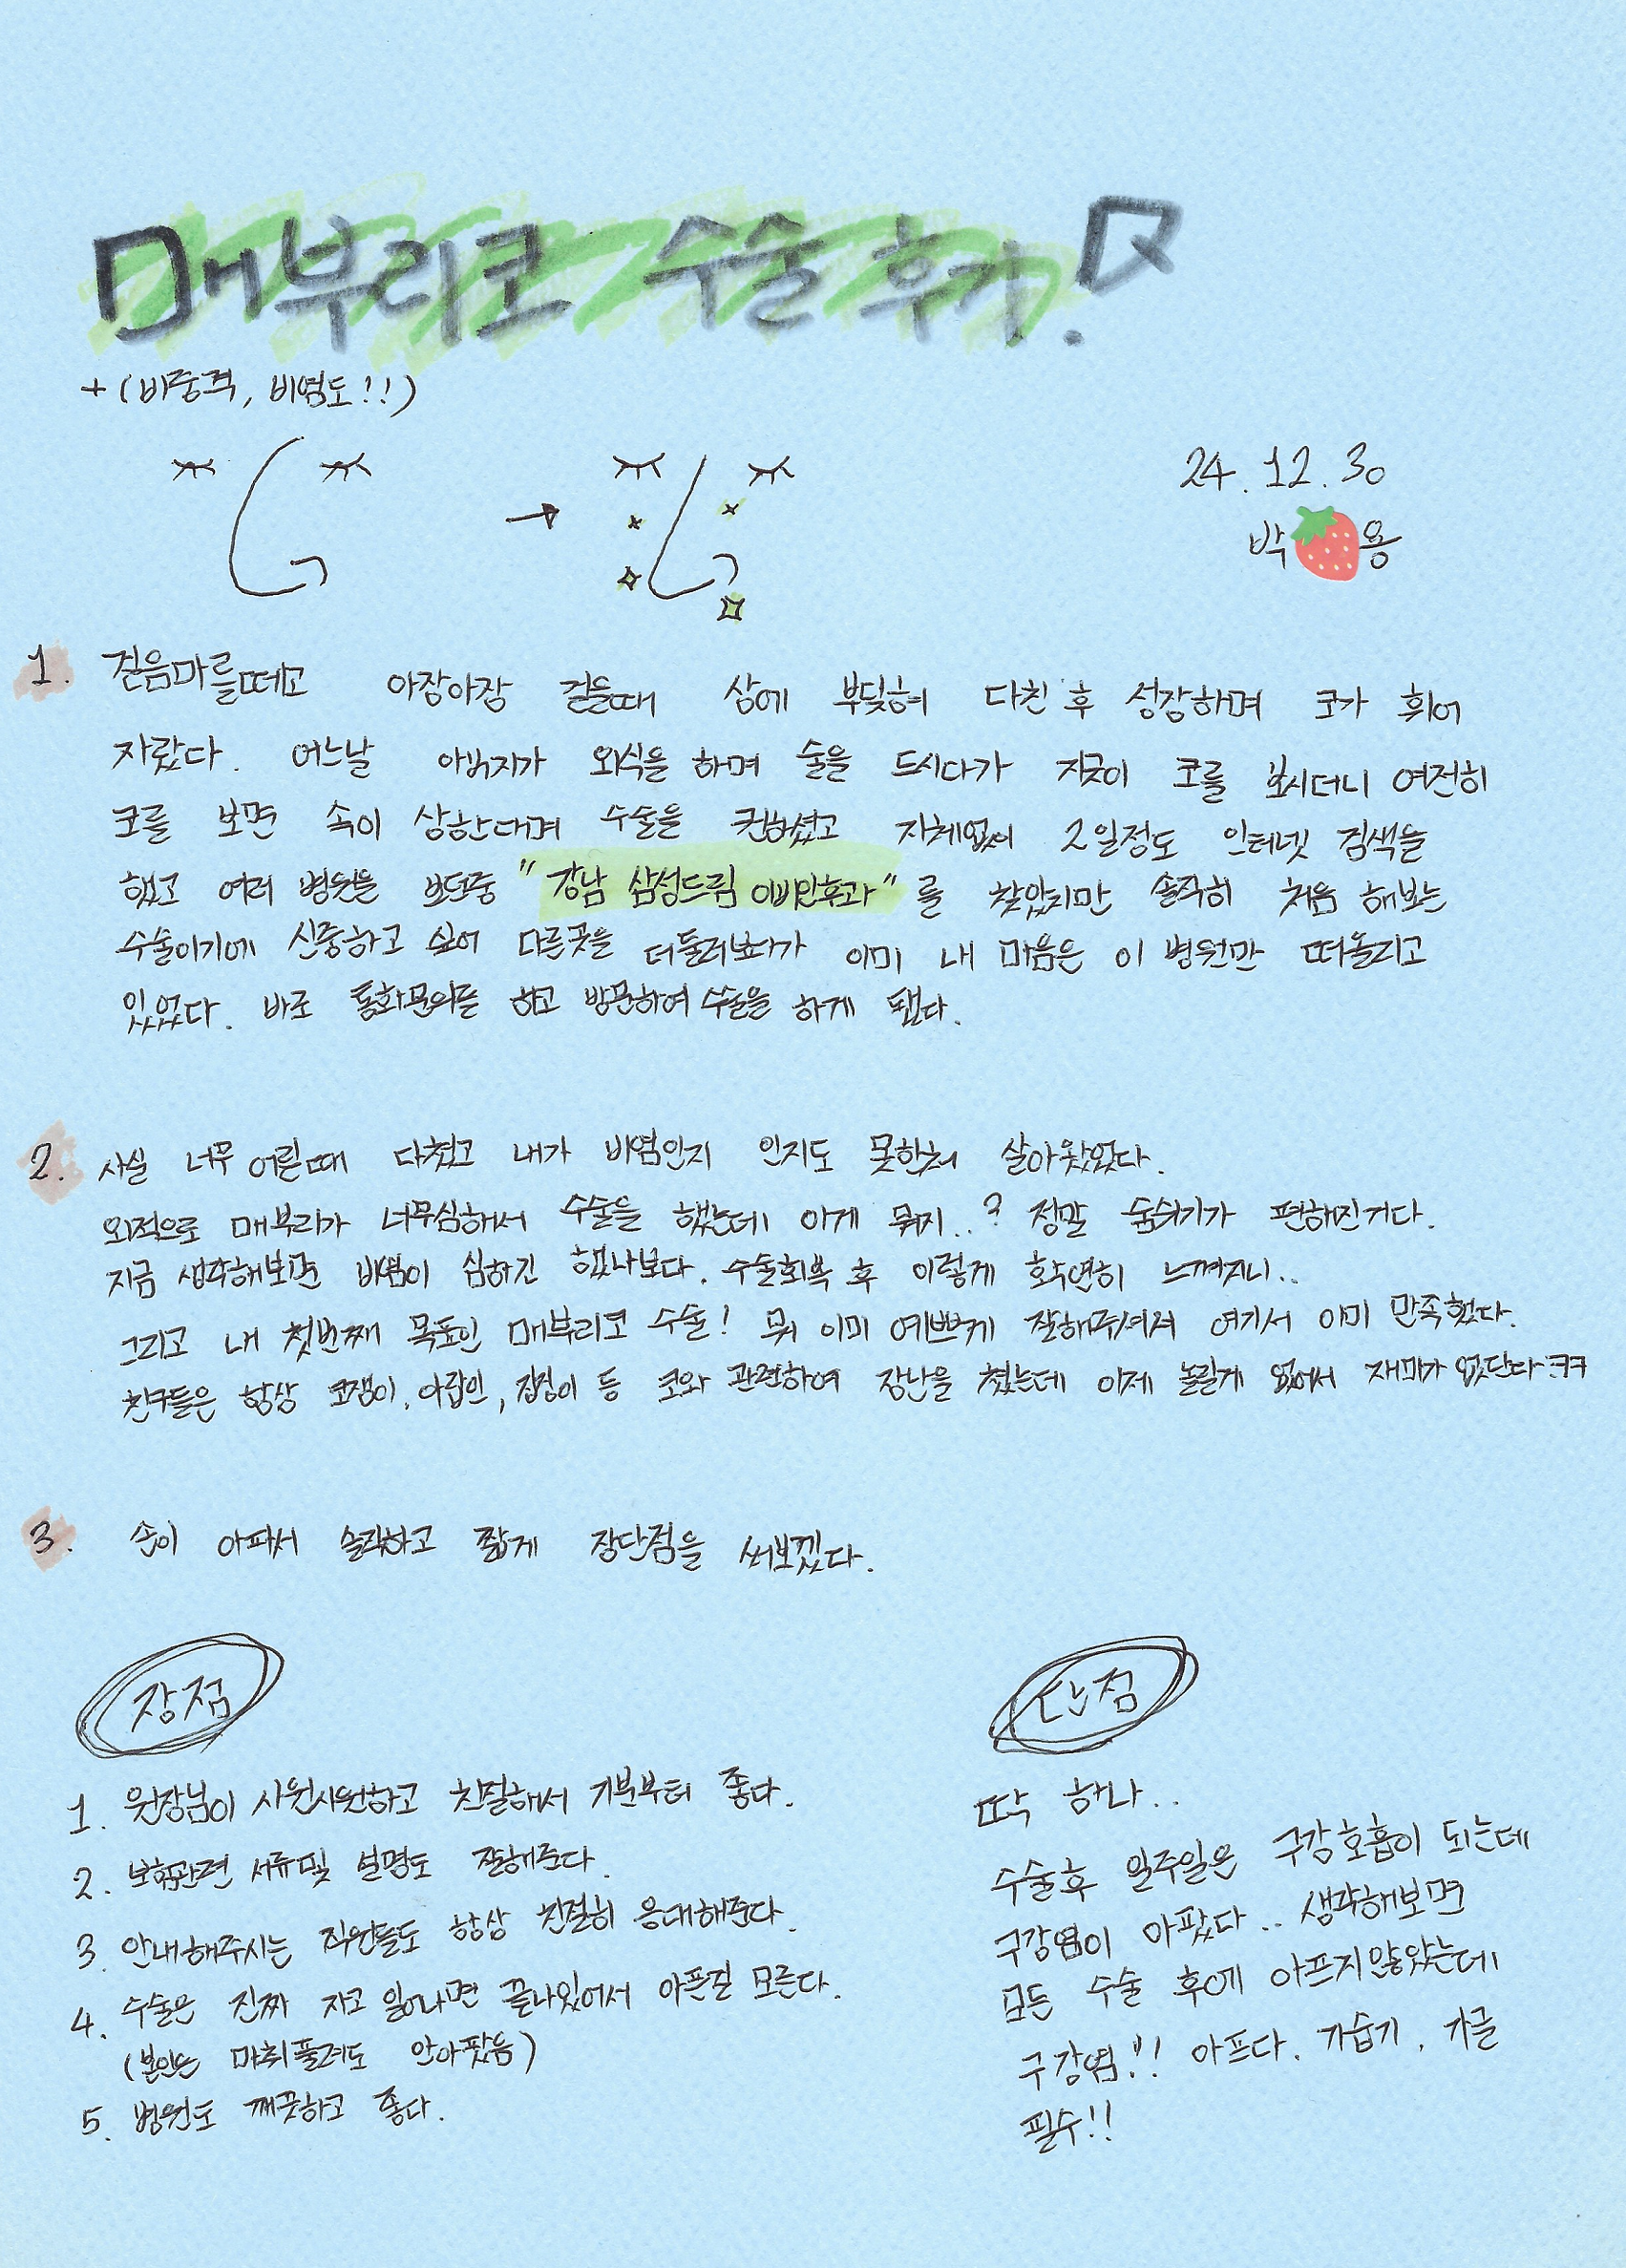 매부리코 수술 후기.
+ (비중격, 비염도!!)
24. 12. 30
박 용
1. 걸음마를떼고 아장아장 걸을때 상에 부딪혀 다친 후 성장하며 코가 휘어
자랐다. 어느날 아버지가 외식을 하며 술을 드시다가 지긋이 코를 보시더니 여전히
코를 보면 속이 상한다며 수술을 권하셨고 지체없이 2일정도 인터넷 검색을
했고 여러 병원을 보던중 "강남 삼성드림 이비인후과"를 찾았지만 솔직히 처음 해보는
수술이기에 신중하고 싶어 다른곳을 더둘러보다가 이미 내 마음은 이 병원만 떠올리고
있었다. 바로 통화문의를 하고 방문하여 수술을 하게 됐다.
2. 사실 너무 어릴때 다쳤고 내가 비염인지 인지도 못한채 살아왔었다.
외적으로 매부리가 너무심해서 수술을 했는데 이게 뭐지..? 정말 숨쉬기가 편해진거다.
지금 생각해보면 비염이 심하긴 했나보다. 수술회복 후 이렇게 확연히 느껴지니..
그리고 내 첫번째 목표인 매부리코 수술! 뭐 이미 예쁘게 잘해주셔서 여기서 이미 만족했다.
친구들은 항상 코쟁이, 아랍인, 집정이 등 코와 관련하여 장난을 쳤는데 이제 놀릴게 없어서 재미가 없단다ㅋㅋ
3. 손이 아파서 솔직하고 짧게 장단점을 써보겠다.
장점
1. 원장님이 시원시원하고 친절해서 기분부터 좋다.
2. 보험관련 서류및 설명도 잘해준다.
3. 안내해주시는 직원들도 항상 친절히 응대해준다.
4. 수술은 진짜 자고 일어나면 끝나있어서 아픈질 모른다.
(본인은 마취풀려도 안아팠음)
5. 병원도 깨끗하고 좋다.
단점
딱 하나..
수술후 일주일은 구강호흡이 되는데
구강염이 아팠다.. 생각해보면
모든 수술 후에 아프지않았는데
구강염!! 아프다. 가습기, 가글
필수!!